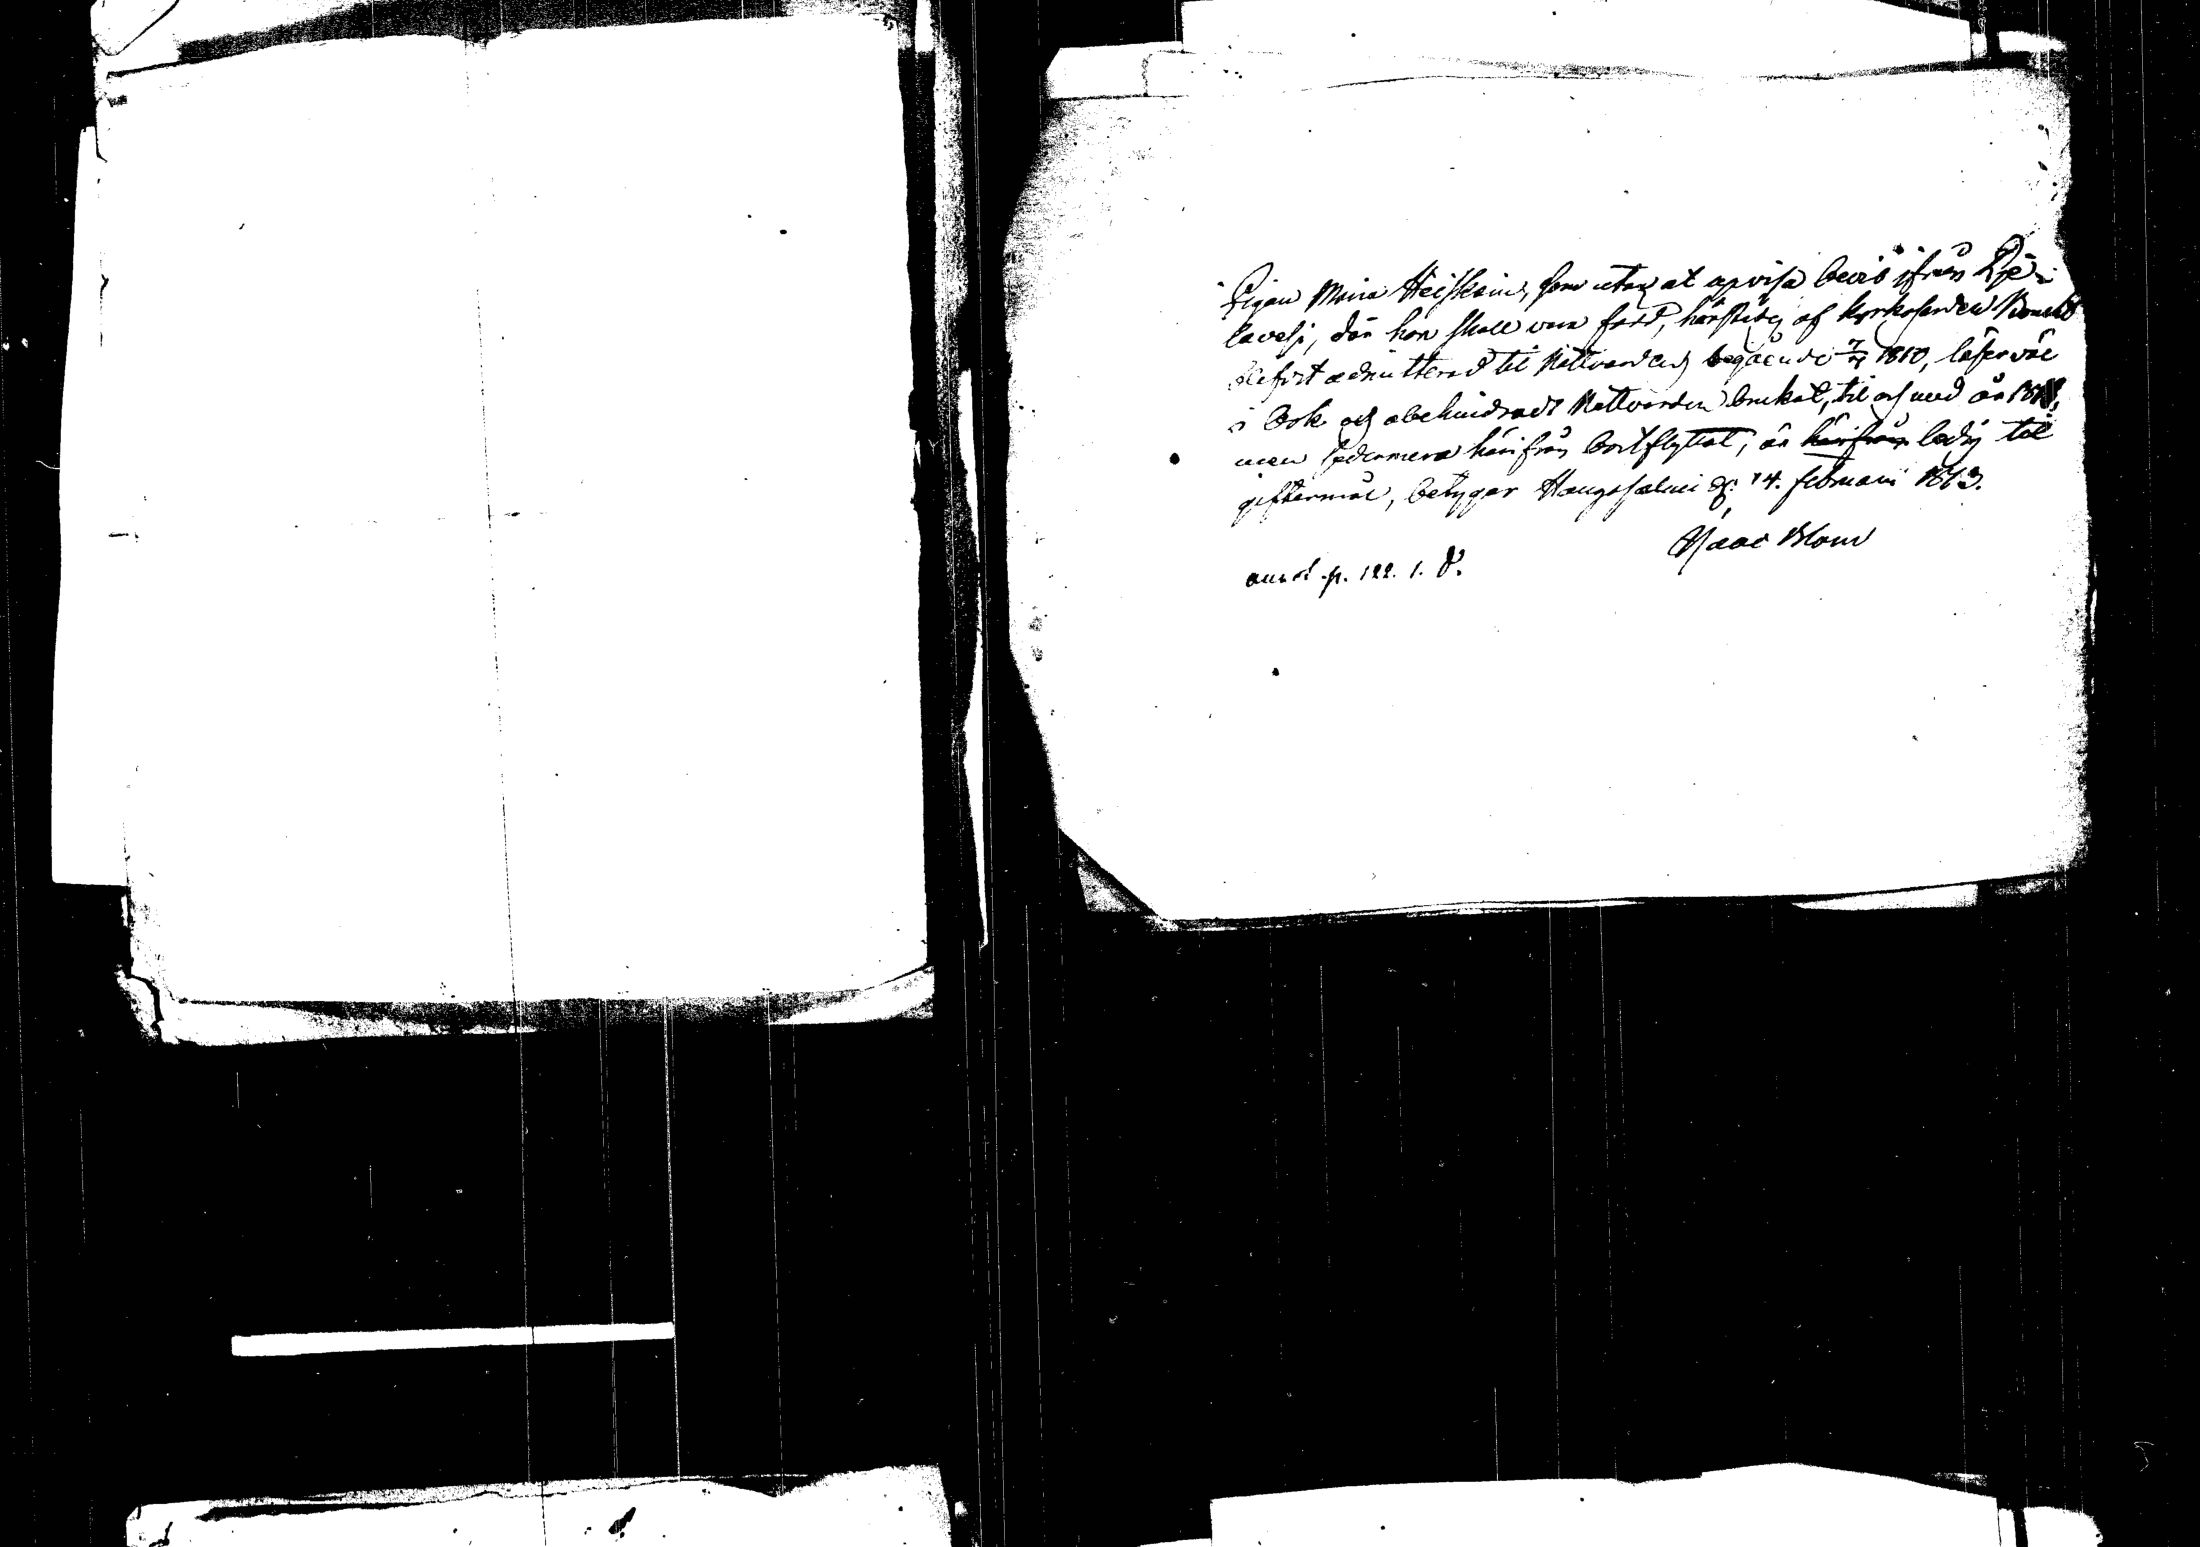 Pigan Maria Heiskain, som utan at upvisa bevis ifrån Pje-
lavesi, där hon skall vara född, härstädes af kyrkoherden
blifvit admitterad til Nattvardens begående 1810, läser väl
i bok och obehindradt Nattvarden brukat, til och med år
men sedermera härifrån bortflyttat, är härifrån ledig til
giftermål, betygar Haugsalmi d: 14. februarii 1813.
Isaac Blom
annot. p. 122. 1. d.